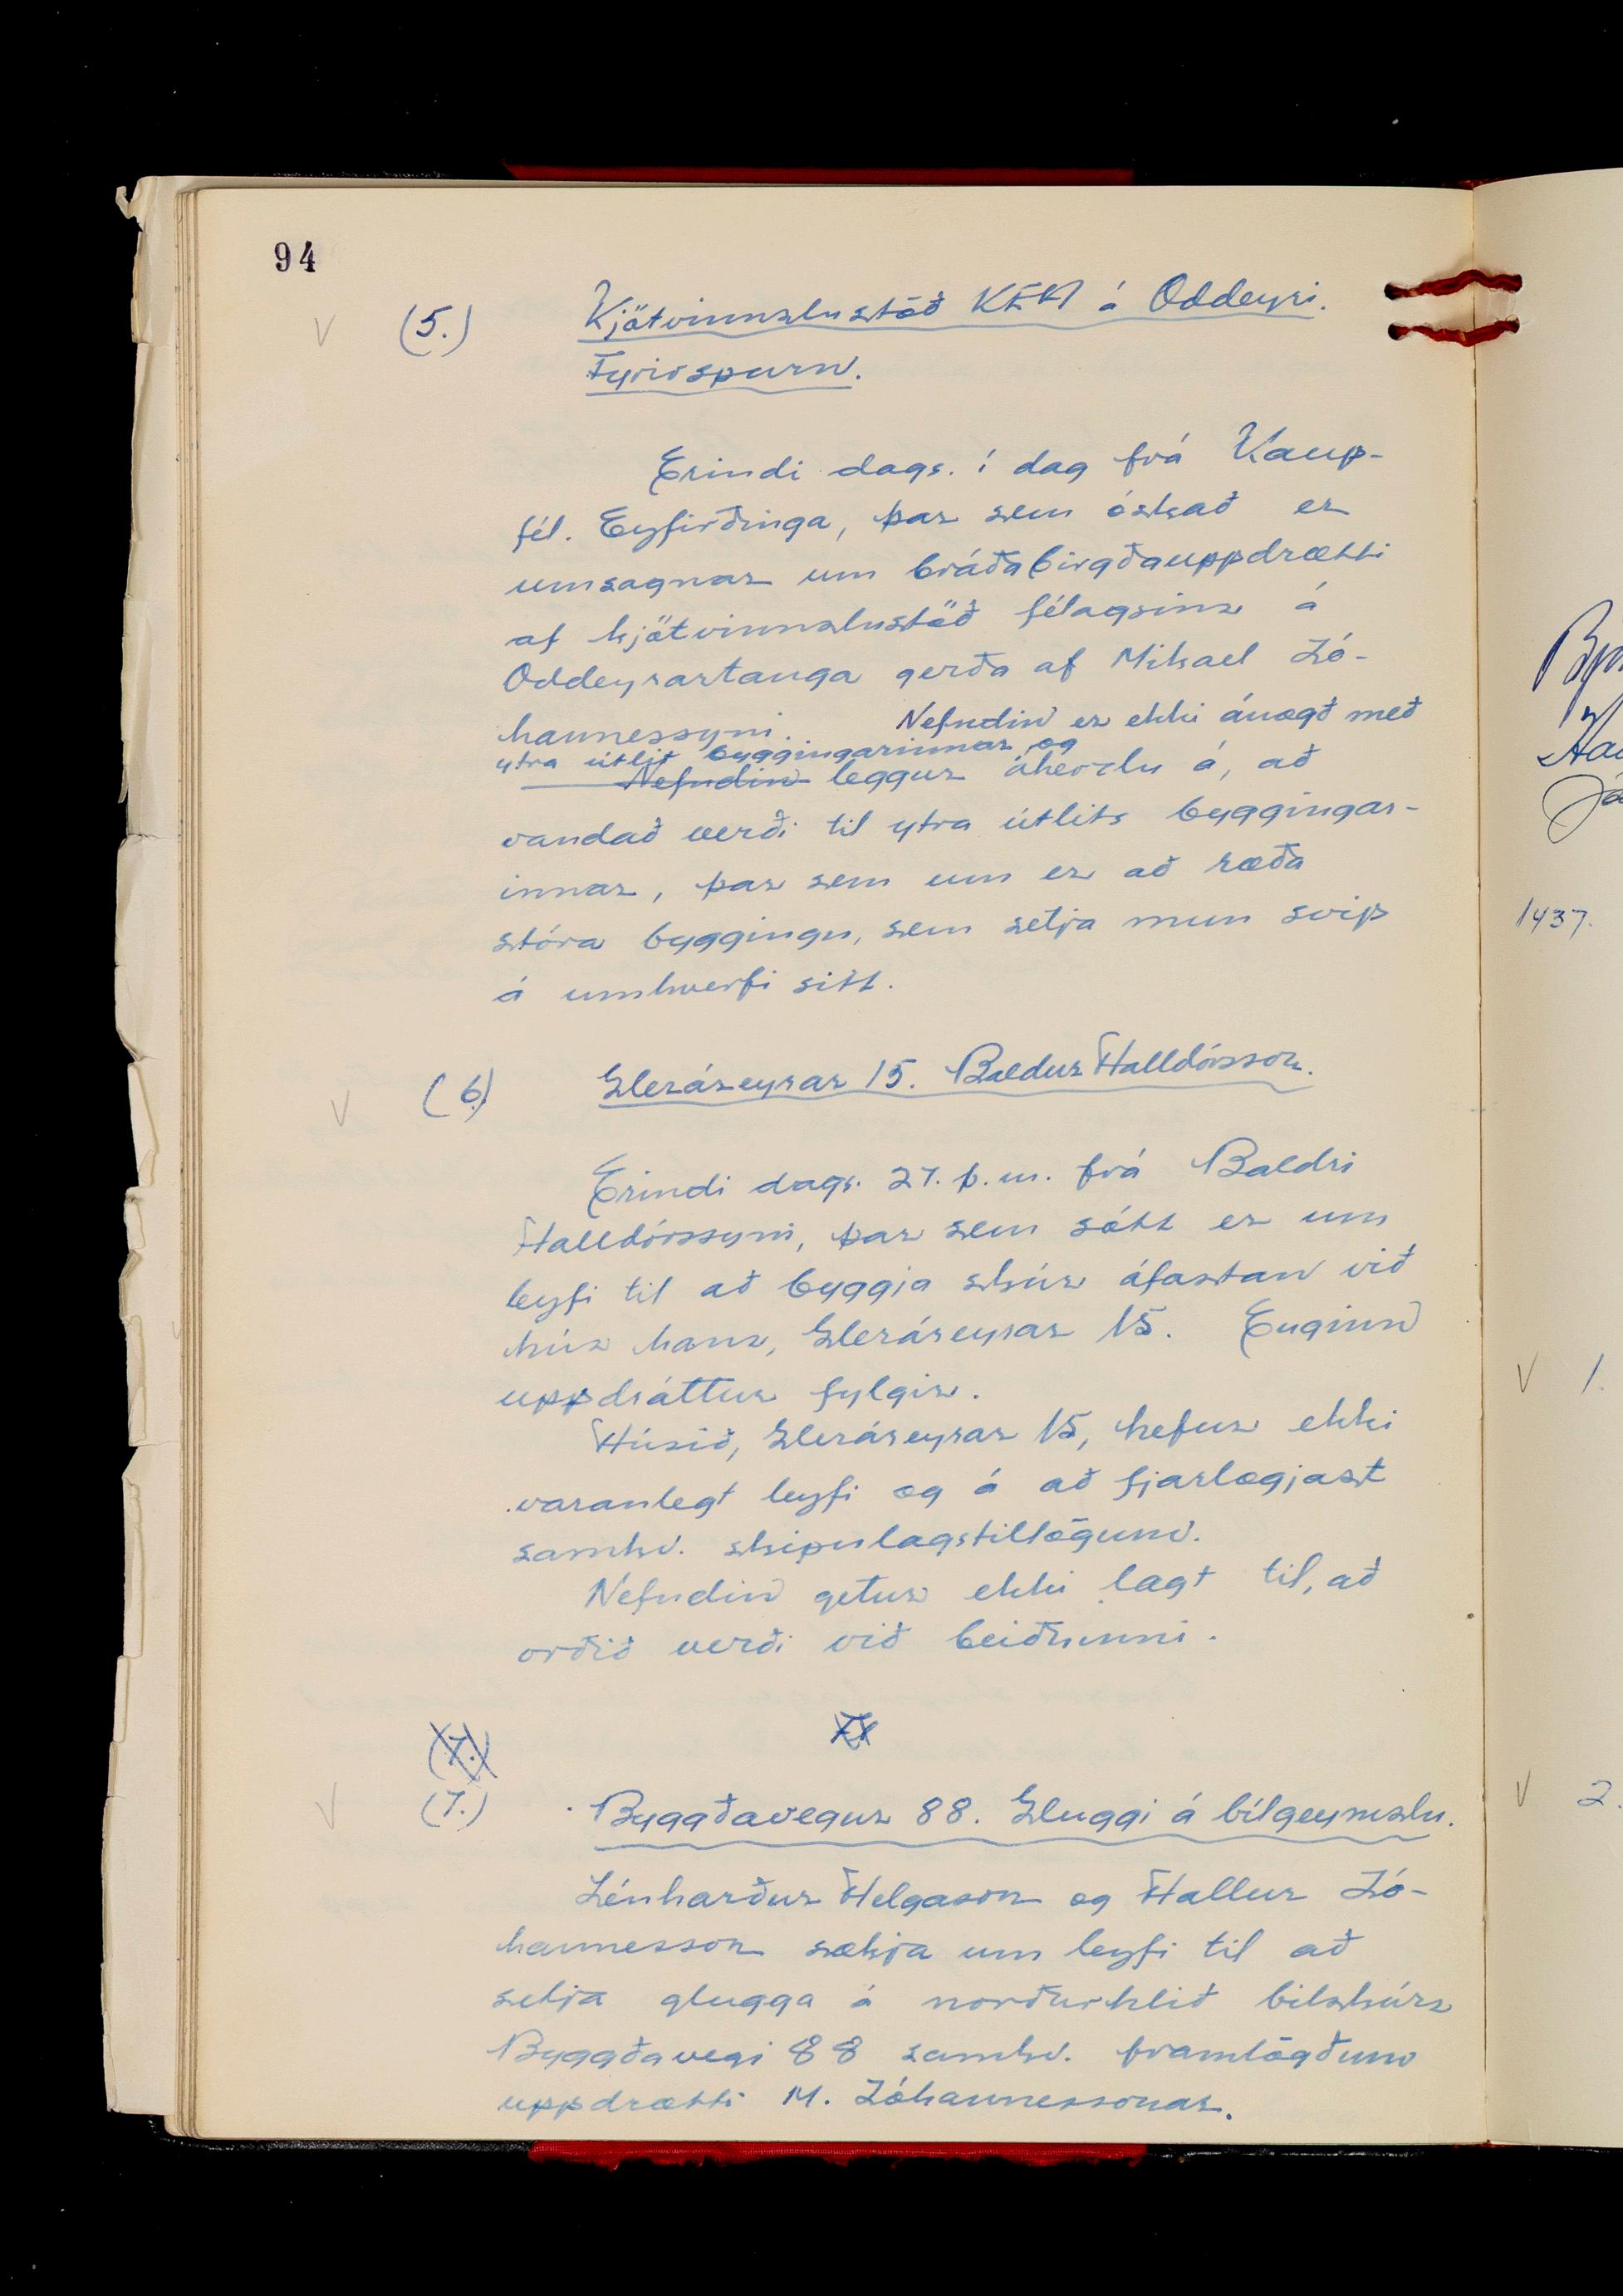 94
(5.) Kjötvinnslustöð KEA á Oddeyri.
Fyrirspurn.
Erindi dags. í dag frá Kaup-
fél. Eyfirðinga, þar sem óskað er
umsagnar um bráðabirgðauppdrætti
af kjötvinnslustöð félagsins á
Oddeyrartanga gerða af Mikael Jó-
hannessyni. Nefndin er ekki ánægð með
ytra útlit byggingarinnar og
Nefndin leggur áherslu á, að
vandað verði til ytra útlits byggingar-
innar, þar sem um er að ræða
stóra byggingu, sem setja mun svip
á umhverfi sitt.
(6.) Gleráreyrar 15. Baldur Halldórsson.
Erindi dags. 27. þ.m. frá Baldri
Halldórssyni, þar sem sótt er um
leyfi til að byggja skúr áfastan við
hús hans, Gleráreyrar 15. Enginn
uppdráttur fylgir.
Húsið, Gleráreyrar 15, hefur ekki
varanlegt leyfi og á að fjarlægjast
samkv. skipulagstillögum.
Nefndin getur ekki lagt til, að
orðið verði við beiðninni.
(7.)
(7.) Byggðavegur 88. Gluggi á bílgeymslu.
Lénharður Helgason og Hallur Jó-
hannesson sækja um leyfi til að
setja glugga á norðurhlið bílskúrs
Byggðavegi 88 samkv. framlögðum
uppdrætti M. Jóhannessonar.
1437.
1.
2.